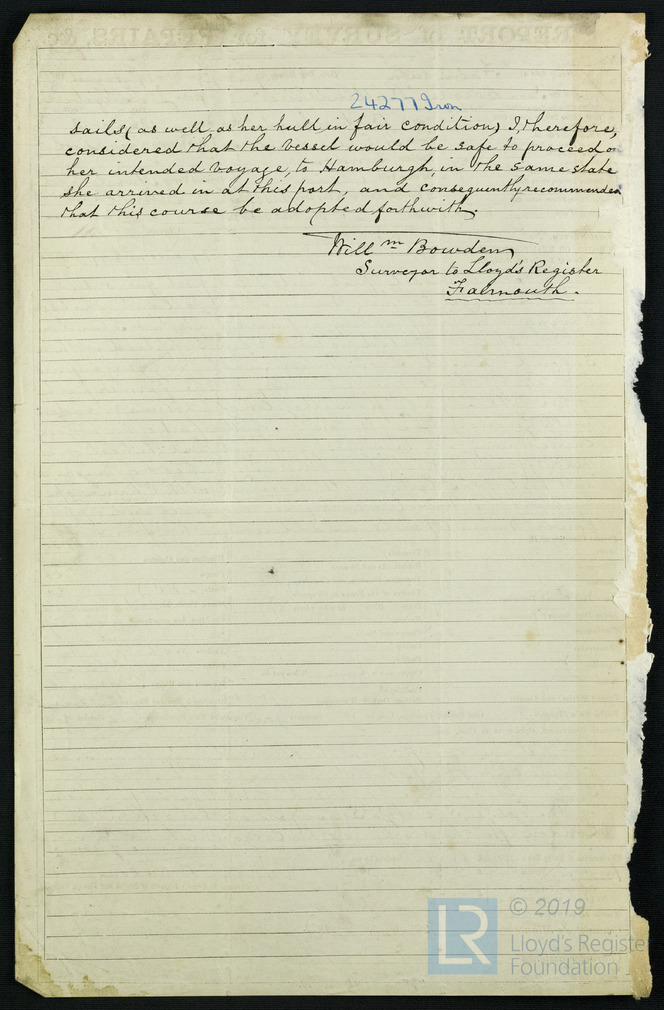 24277 Iron
sails (as well as her hull in fair condition) I, therefore,
considered that the vessel would be safe to proceed o
her intended voyage, to Hamburgh, in the same state
she arrived in at this port, and consequently recommended
that this course be adopted forthwith.
Will m Bowden
Surveyor to Lloyd's Register
Falmouth.
LR
© 2019
Lloyd's Register
Foundation